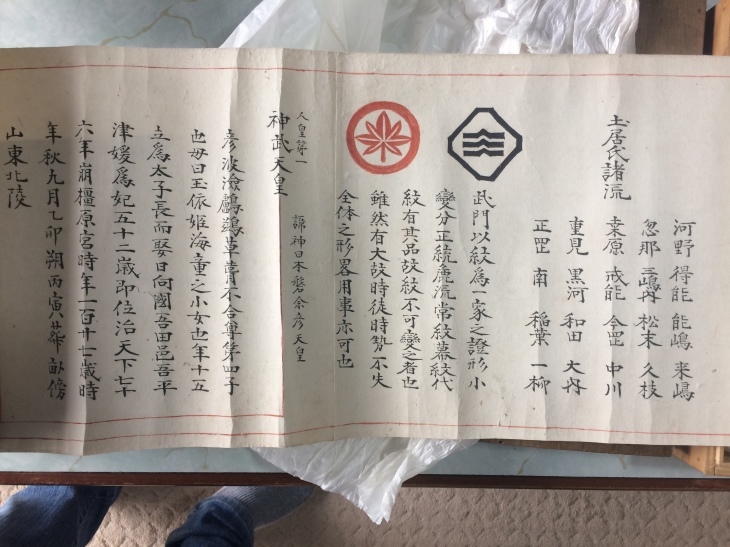 土居氏諸流
河野 得能 能嶋 来嶋
忽那 松末 久枝
桑原 戒能 今罡 中川
重見 黒河 和田 大内
正罡 南 稲葉 一柳
武門以紋爲一家之證形小
變分正統庶流常紋幕紋代
紋有其品故紋不可變之者也
雖然有大故時徒時勢不失
全体之形畧用事亦可也
人皇第一
神武天皇 諱神日本磐余彦天皇
彦波瀲鸕鷀草葺不合尊第四子
也母曰玉依姫海童之小女也年十五
立爲太子長而娶日向國吾田邑吾平
津媛爲妃五十二歳即位治天下七十
六年崩橿原宮時年一百廿七歳時
年秋九月乙卯朔丙寅葬畝傍
山東北陵